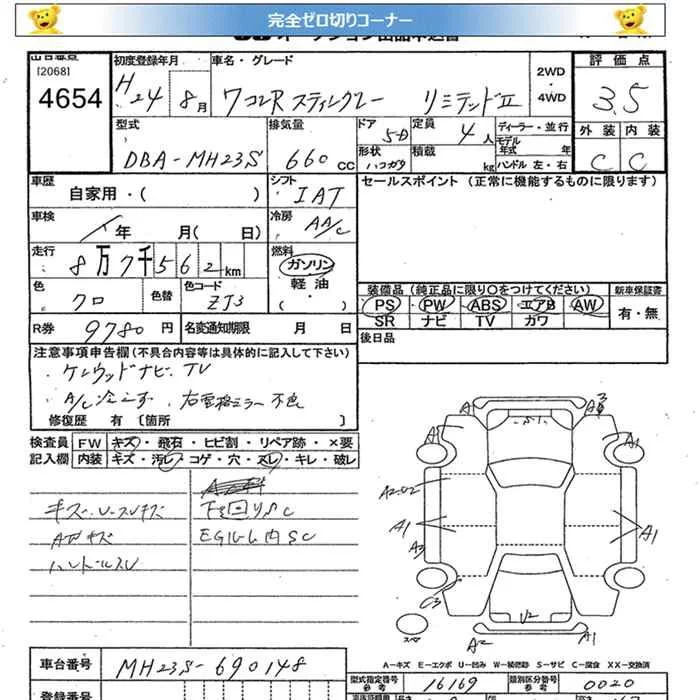 完全ゼロ切りコーナー
[2068]
4654
初度登録年月
H24 8月
車名・グレード
ワゴンR スティングレー リミテッドⅡ
2WD
・
4WD
評価点
3.5
型式
DBA-MH23S
排気量
660 CC
ドア 5-D
定員 4人
ディーラー・並行
モデル年式 年
形状
積載 kg
ハンドル 左・右
外装 内装
C C
車歴
自家用・( )
シフト
IAT
セールスポイント (正常に機能するものに限ります)
車検
年 月( 日)
冷房
AA/C
走行
8万7千562km
燃料
ガソリン
軽油
( ・ )
色
クロ
色替
色コード
ZJ3
装備品(純正品に限り○をつけてください)
PS PW ABS エアB AW
SR ナビ TV カワ
新車保証書
有・無
R券 9780円
名変通知期限 月 日
後日品
注意事項申告欄(不具合内容等は具体的に記入して下さい)
・ケンウッドナビ・TV
・A/C冷えず ・右電格ミラー不良
修復歴 有 〔箇所 〕
検査員 FW キズ・飛石・ヒビ割・リペア跡・×要
記入欄 内装 キズ・汚レ・コゲ・穴・スレ・キレ・破レ
下回りSC
EGルーム内SC
ハンドルスレ
A1
A3
A1
A1
A2.U2
A1
A3
A1
C3
U2
スペア
A2
A1
A-キズ E-エクボ U-凹み W-補修跡 S-サビ C-腐食 XX-交換済
車台番号
MH23S-690148
型式指定番号
参考
16169
類別区分番号
参考
0020
登録番号